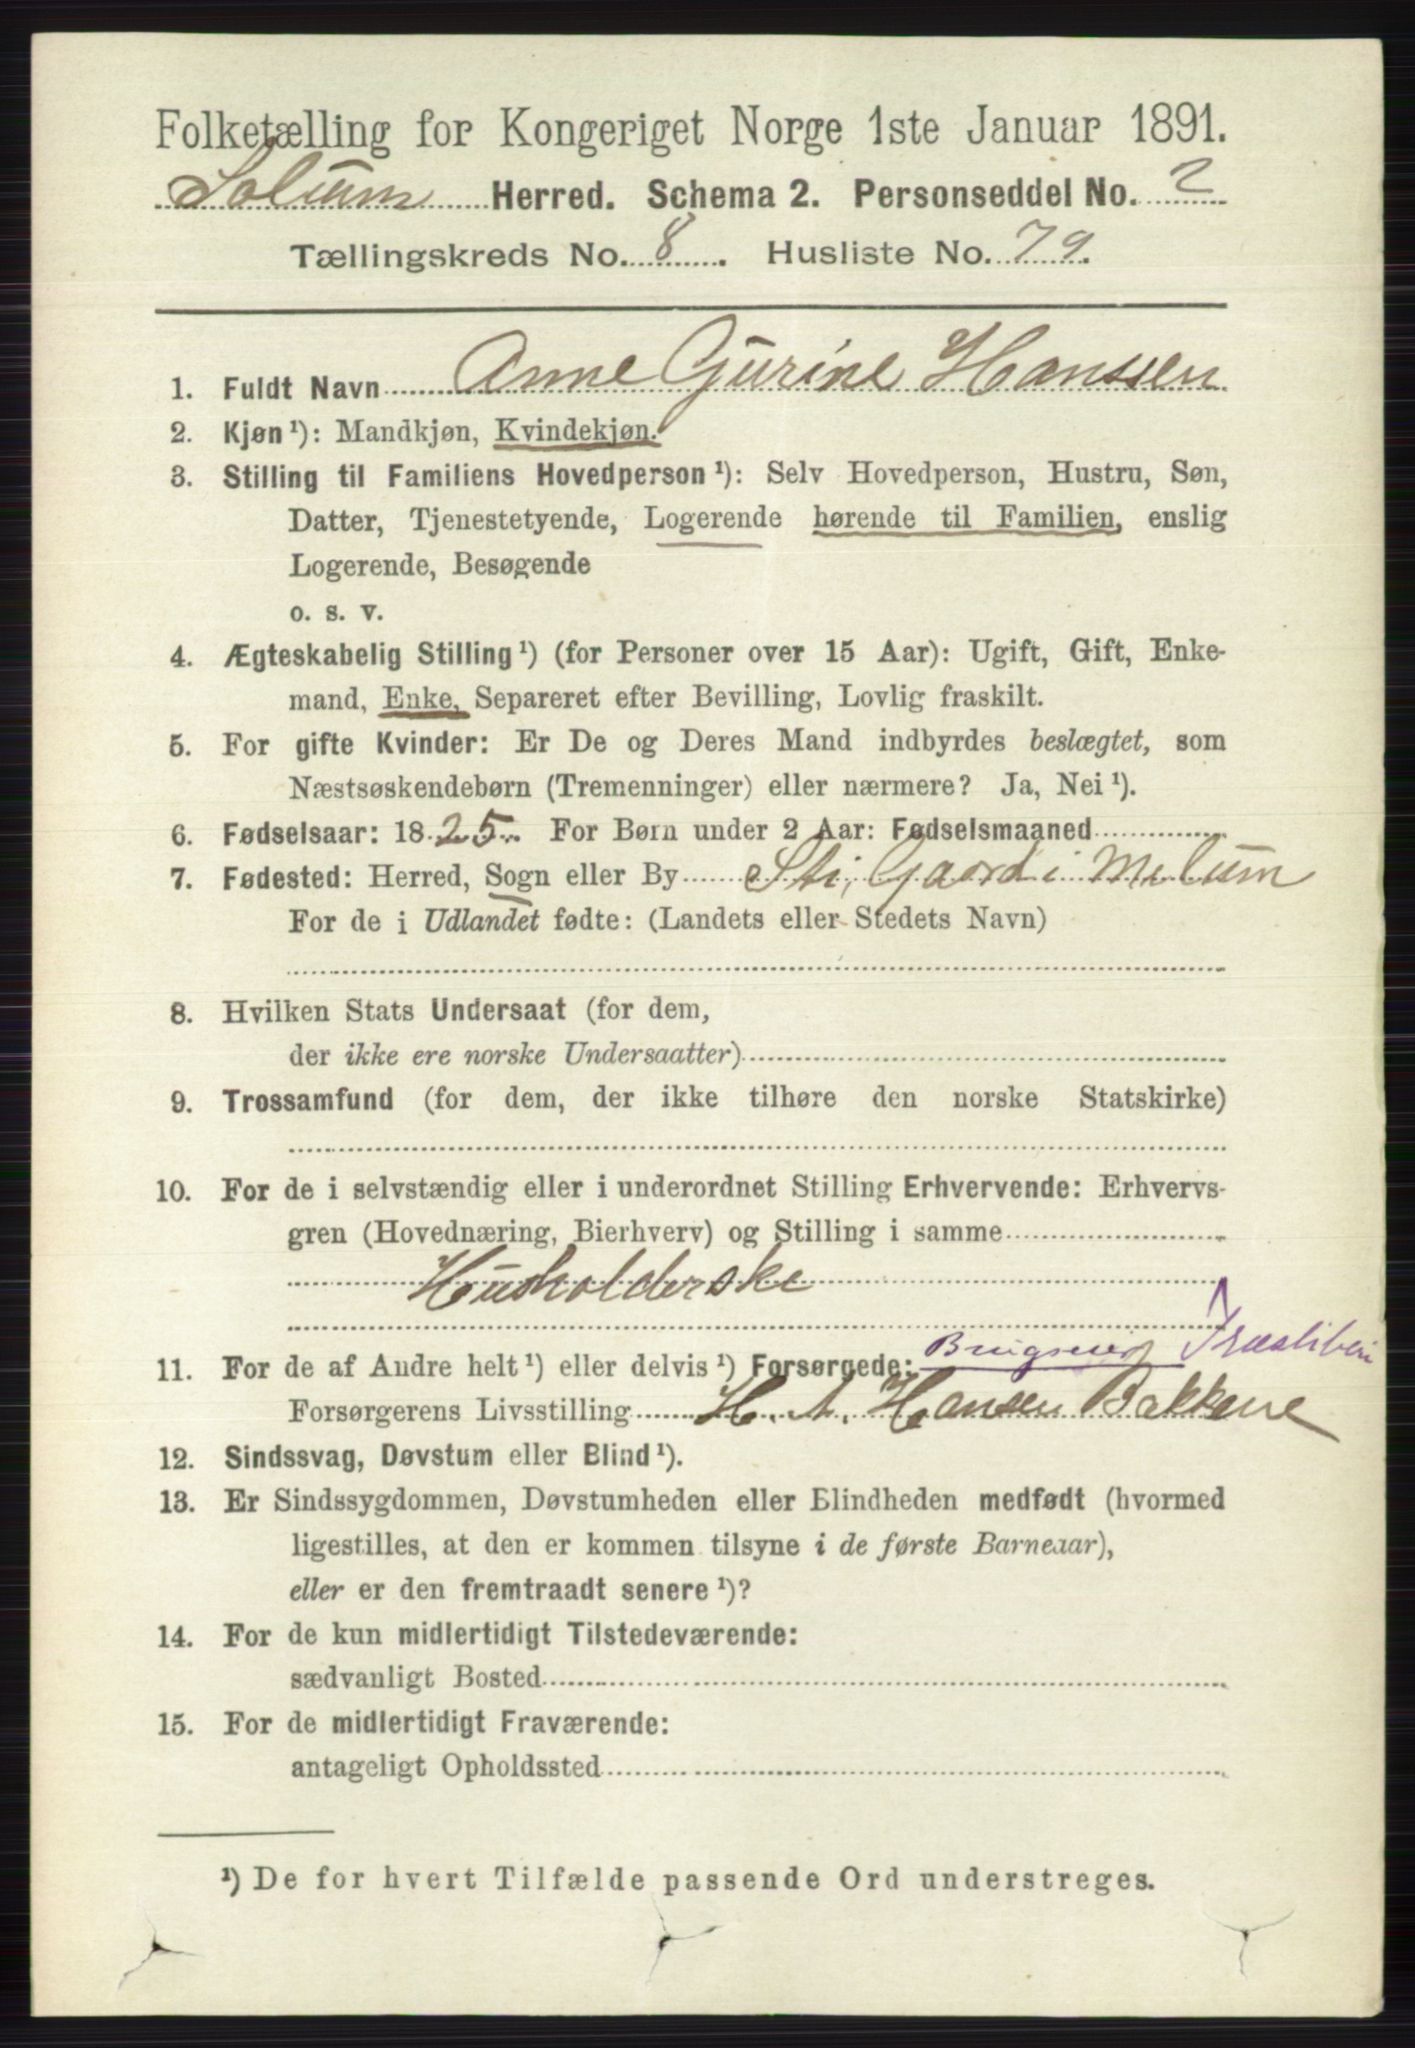 Folketælling for Kongeriget Norge 1ste Januar 1891.
Solum Herred. Schema 2. Personseddel No. 2
Tællingskreds No. 8. Husliste No. 79.
1. Fuldt Navn Anne Gurine Hanssen
2. Kjøn¹): Mandkjøn, Kvindekjøn.
3. Stilling til Familiens Hovedperson¹): Selv Hovedperson, Hustru, Søn,
Datter, Tjenestetyende, Logerende hørende til Familien, enslig
Logerende, Besøgende
o. s. v.
4. Ægteskabelig Stilling¹) (for Personer over 15 Aar): Ugift, Gift, Enke-
mand, Enke, Separeret efter Bevilling, Lovlig fraskilt.
5. For gifte Kvinder: Er De og Deres Mand indbyrdes beslægtet, som
Næstsøskendebørn (Tremenninger) eller nærmere? Ja, Nei¹).
6. Fødselsaar: 1825. For Børn under 2 Aar: Fødselsmaaned
7. Fødested: Herred, Sogn eller By Sti, Gaard i Melum
For de i Udlandet fødte: (Landets eller Stedets Navn)
8. Hvilken Stats Undersaat (for dem,
der ikke ere norske Undersaatter)
9. Trossamfund (for dem, der ikke tilhøre den norske Statskirke)
10. For de i selvstændig eller i underordnet Stilling Erhvervende: Erhvervs-
gren (Hovednæring, Bierhverv) og Stilling i samme
Husholderske
11. For de af Andre helt¹) eller delvis¹) Forsørgede: Brugseier
Forsørgerens Livsstilling H. A. Hansen Bakkene
12. Sindssvag, Døvstum eller Blind¹).
13. Er Sindssygdommen, Døvstumheden eller Blindheden medfødt (hvormed
ligestilles, at den er kommen tilsyne i de første Barneaar),
eller er den fremtraadt senere¹)?
14. For de kun midlertidigt Tilstedeværende:
sædvanligt Bosted
15. For de midlertidigt Fraværende:
antageligt Opholdssted
¹) De for hvert Tilfælde passende Ord understreges.